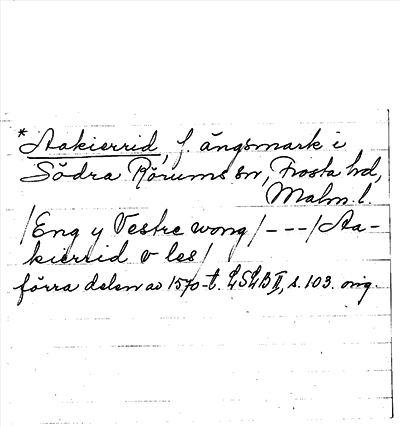 *Aakierrid, f. ängsmark i
Södra Rörums sn, Frosta hd,
Malm. l.
/Eng y Vestre wong/---/Aa-
kierrid v les/
förra delen av 1570-t. LSLB II, s. 103. orig.